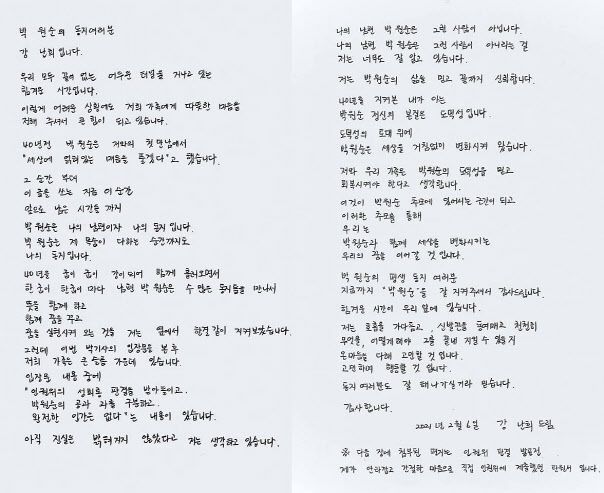 박 원순의 동지여러분
강 난희입니다.
우리 모두 끝이 없는 어두운 터널을 거니고 있는
힘겨운 시간입니다.
이렇게 어려운 상황에도 저희 가족에게 따뜻한 마음을
전해 주셔서 큰 힘이 되고 있습니다.
40년전 박 원순은 저와의 첫 만남에서
"세상에 얽혀있는 매듭을 풀겠다"고 했습니다.
그 순간 부터
이 글을 쓰는 지금 이 순간
앞으로 남은 시간들 까지
박 원순은 나의 남편이자 나의 동지 입니다.
박 원순은 제 목숨이 다하는 순간까지도
나의 동지입니다.
40년을 굽이 굽이 강이되어 함께 흘러오면서
한 굽이 한굽이 마다 남편 박 원순은 수 많은 동지들을 만나서
뜻을 함께 하고
함께 꿈을 꾸고
꿈을 실현시켜 오는 것을 저는 옆에서 한결같이 지켜보았습니다.
그런데 이번 박기사의 입장문을 본 후
저희 가족은 큰 슬픔 가운데 있습니다.
입장문 내용 중에
"인권위의 성희롱 판결을 받아들이고.
박원순의 공과 과를 구분하고.
완전한 인간은 없다"는 내용이 있습니다.
아직 진실은 밝혀지지 않았다고 저는 생각하고 있습니다.
나의 남편 박 원순은 그런 사람이 아닙니다.
나의 남편 박 원순은 그런 사람이 아니라는 걸
저는 너무도 잘 알고 있습니다.
저는 박원순의 삶을 믿고 끝까지 신뢰합니다.
40년을 지켜본 내가 아는
박원순 정신의 본질은 도덕성 입니다.
도덕성의 토대 위에
박원순은 세상을 거침없이 변화시켜 왔습니다.
저와 우리 가족은 박원순의 도덕성을 믿고
회복시켜야 한다고 생각합니다.
이것이 박원순 추모에 있어서는 근간이 되고
이러한 추모를 통해
우리는
박원순과 함께 세상을 변화시키는
우리의 꿈을 이어갈 것 입니다.
박 원순의 평생 동지 여러분
지금까지 "박원순"을 잘 지켜주셔서 감사드립니다.
힘겨운 시간이 우리 앞에 있습니다.
저는 호흡을 가다듬고, 신발끈을 동여매고 천천히
무엇을, 어떻게 해야 그를 끝내 지킬 수 있을 지
온마음을 다해 고민할 것 입니다.
고민하며 행동할 것 입니다.
동지 여러분도 잘 해 나가실거라 믿습니다.
감사합니다.
2021년 2월 6일 강 난희 드림
※ 다음 장에 첨부된 편지는 인권위 판결 발표전
제가 안타깝고 간절한 마음으로 직접 인권위에 제출했던 탄원서 입니다.